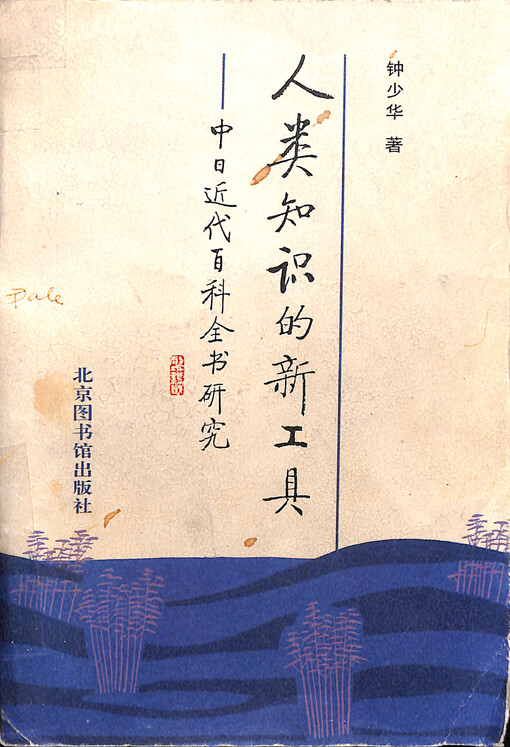 钟少华 著
人类知识的新工具
——中日近代百科全书研究
北京图书馆出版社
Dale